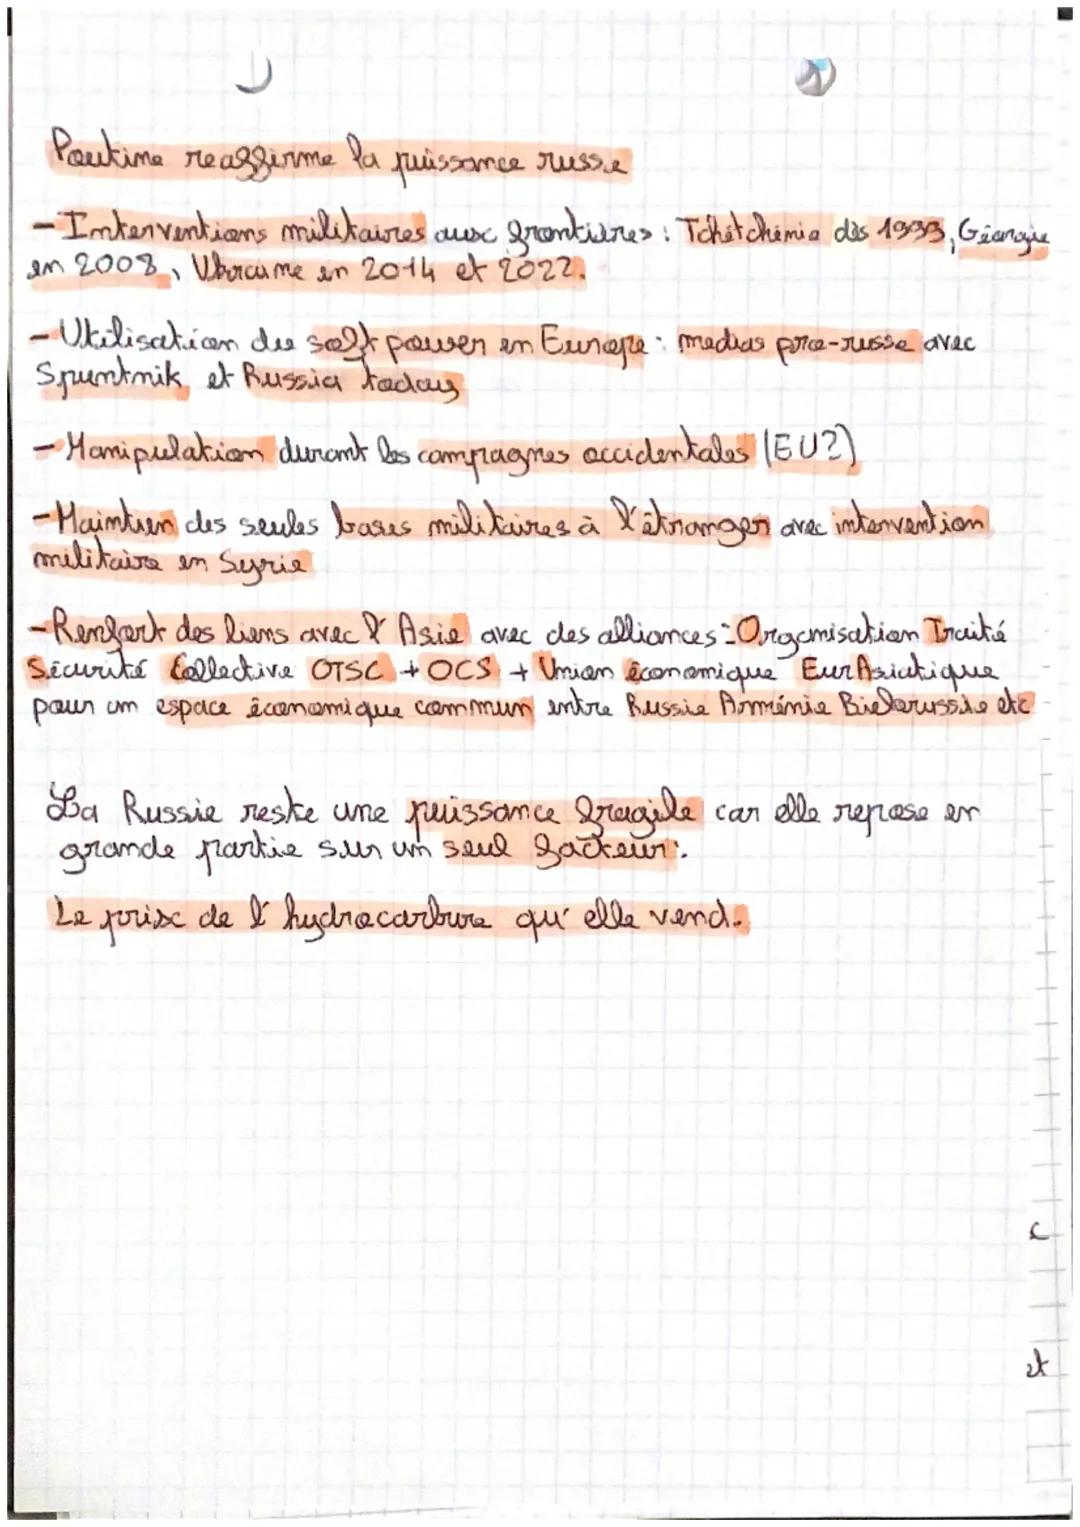 Poutine reaffirme la puissance russe
- Interventions militaires aux frontières : Tchétchénie dès 1999, Géorgie
en 2008, Ukraine en 2014 et 2022.
- Utilisation du soft power en Europe : medias pro-russe avec
Spuntnik et Russia today
- Manipulation durant les campagnes occidentales (EU2)
- Maintien des seules bases militaires à l'étranger avec intervention
militaire en Syrie
- Renfort des liens avec l'Asie avec des alliances : Organisation Traité
Sécurité Collective OTSC + OCS + Union économique EurAsiatique
pour un espace économique commun entre Russie Arménie Bielorussie etc
La Russie reste une puissance fragile car elle repose en
grande partie sur un seul facteur :
Le prix de l'hydrocarbure qu'elle vend.
c
et